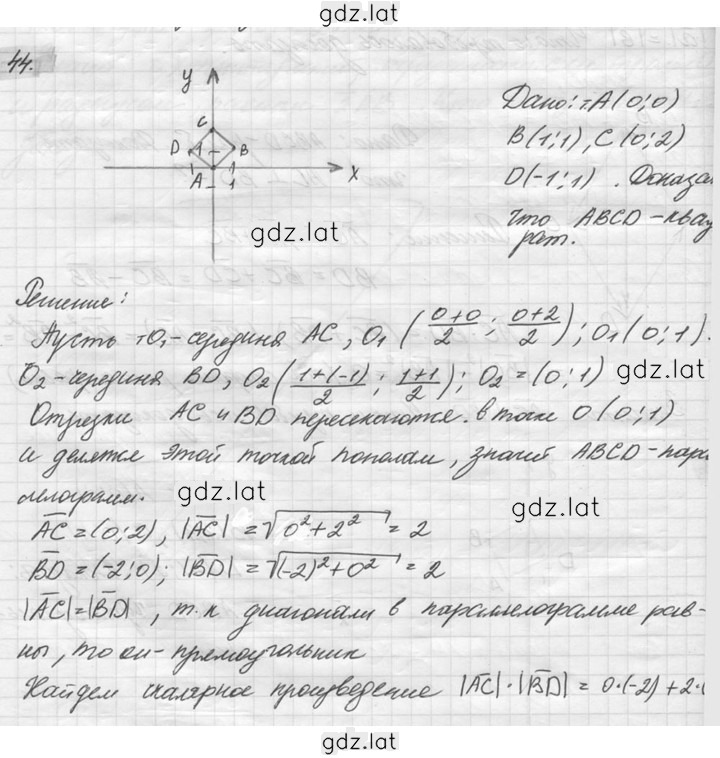 gdz.lat
44.
y
C
D 1 B
A 1 x
Дано: т.A(0;0)
B(1;1), C(0;2)
D(-1;1). Доказа
что ABCD-квад
рат.
gdz.lat
Решение:
Пусть т.O₁-середина AC, O₁((0+0)/2; (0+2)/2); O₁(0;1).
O₂-середина BD, O₂((1+(-1))/2; (1+1)/2); O₂=(0;1)
gdz.lat
Отрезки AC и BD пересекаются в точке O(0;1)
и делятся этой точкой пополам, значит ABCD-парал
лелограмм.
gdz.lat
gdz.lat
AC=(0;2), |AC|=√(0²+2²)=2
BD=(-2;0); |BD|=√((-2)²+0²)=2
|AC|=|BD|, т.к диагонали в параллелограмме рав-
ны, то он-прямоугольник
Найдем скалярное произведение |AC|·|BD|=0·(-2)+2·
gdz.lat